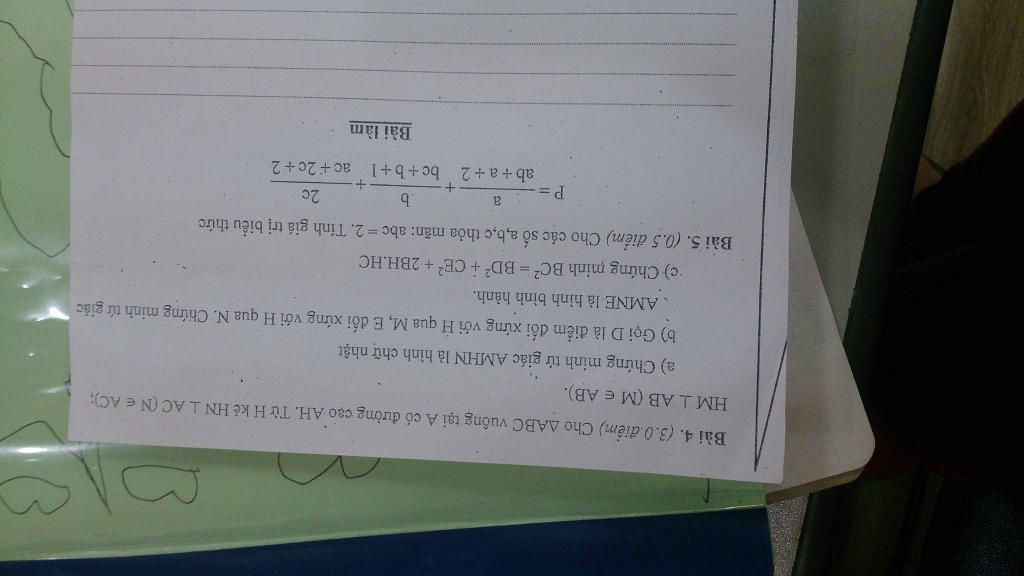 Bài 4. (3.0 điểm) Cho ΔABC vuông tại A có đường cao AH. Từ H kẻ HN ⊥ AC (N ∈ AC);
HM ⊥ AB (M ∈ AB).
a) Chứng minh tứ giác AMHN là hình chữ nhật
b) Gọi D là điểm đối xứng với H qua M, E đối xứng với H qua N. Chứng minh tứ giác
AMNE là hình bình hành.
c) Chứng minh BC² = BD² + CE² + 2BH.HC
Bài 5. (0.5 điểm) Cho các số a,b,c thỏa mãn: abc = 2. Tính giá trị biểu thức
P = a/(ab + a + 2) + b/(bc + b + 1) + 2c/(ac + 2c + 2)
Bài làm